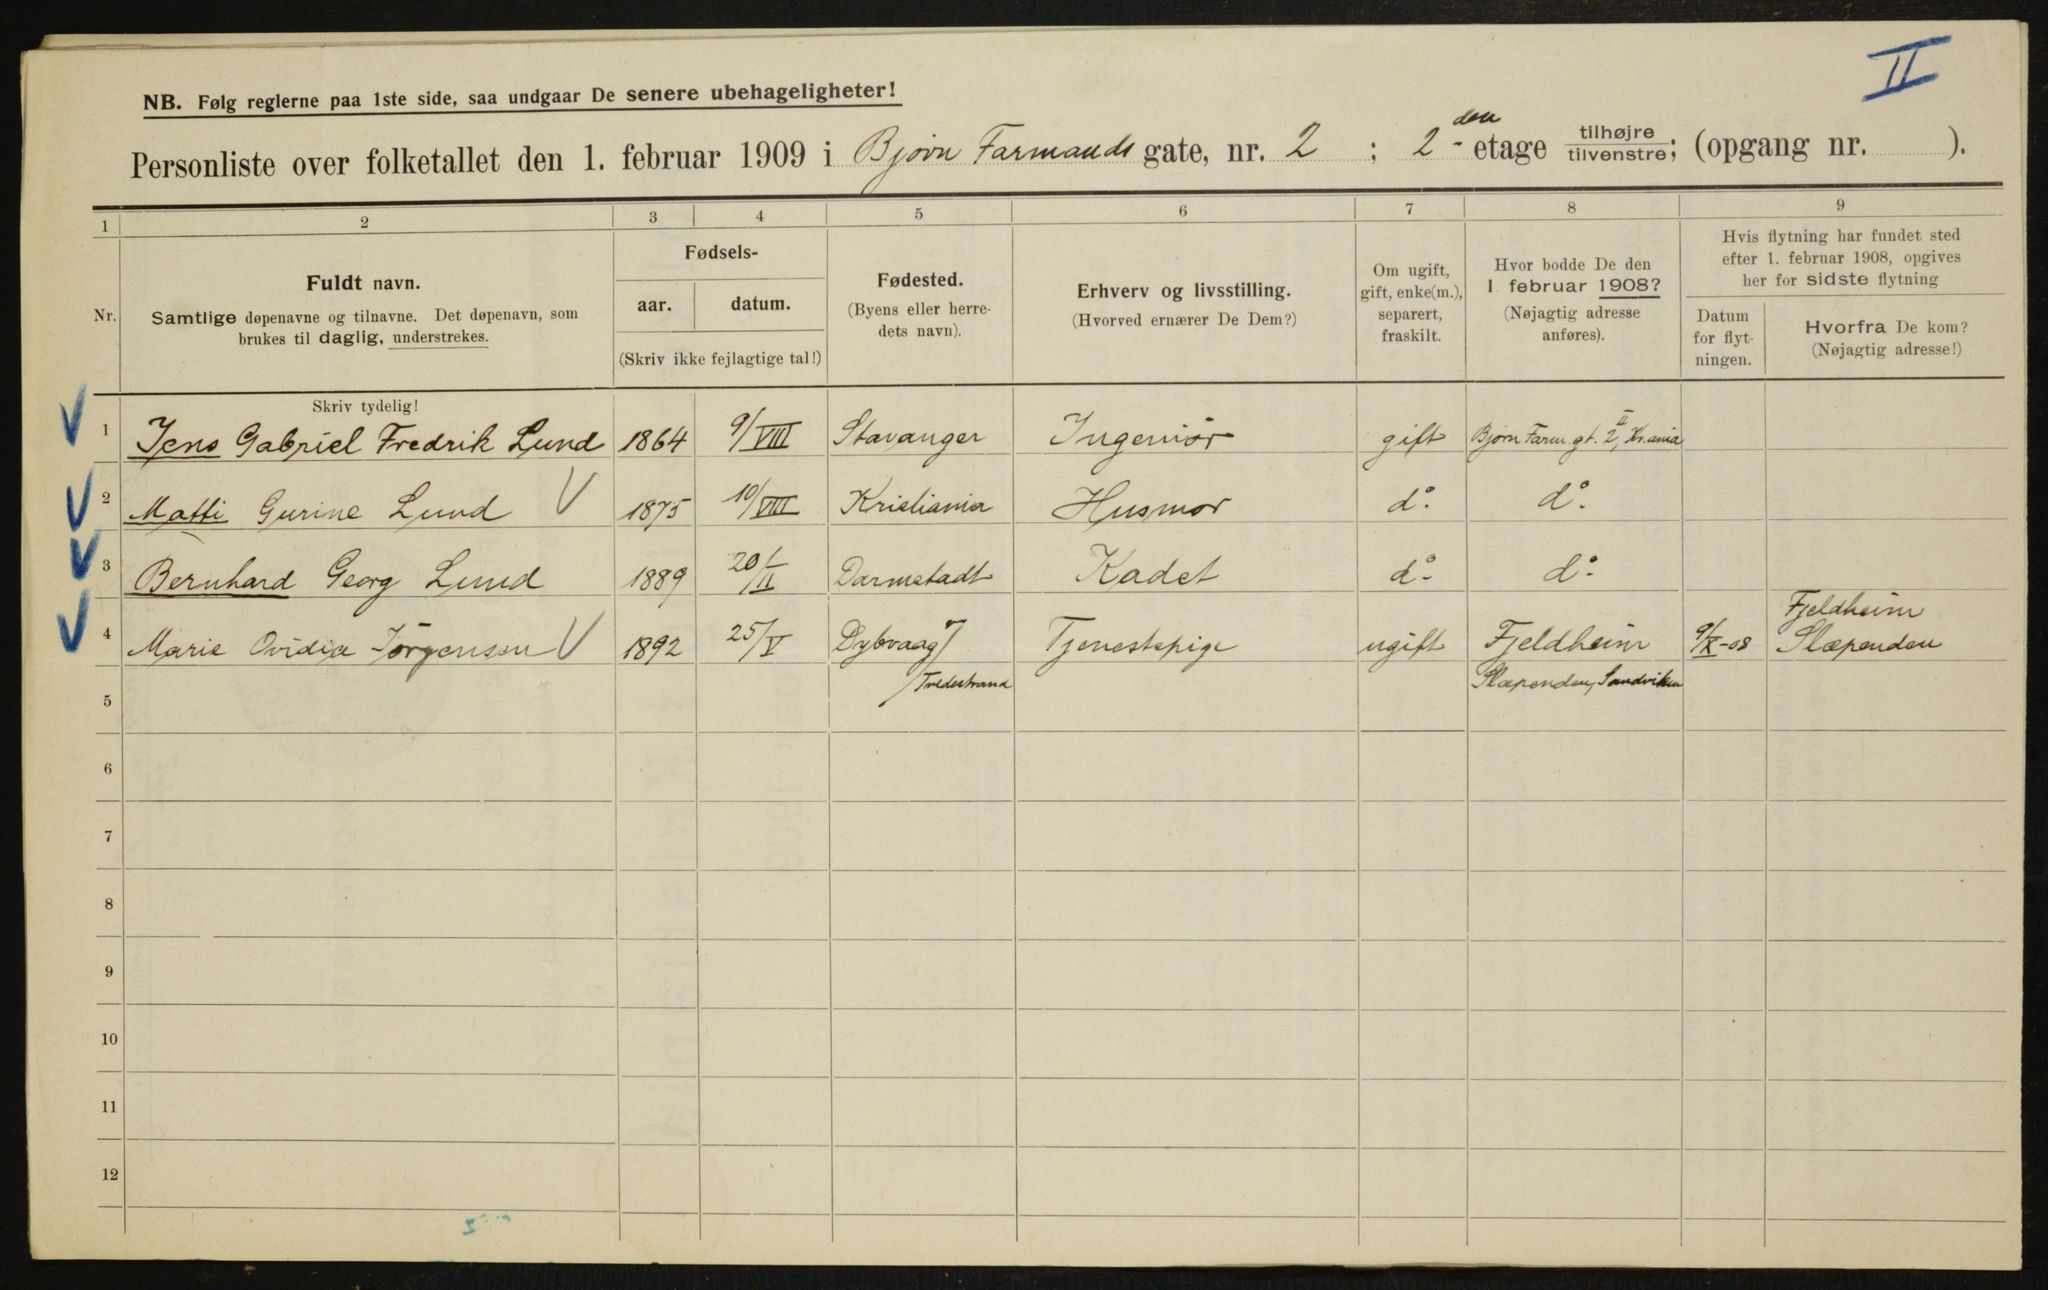 II
NB. Følg reglerne paa 1ste side, saa undgaar De senere ubehageligheter!
Personliste over folketallet den 1. februar 1909 i Bjørn Farmands gate, nr. 2 ; 2-den etage tilhøjre/tilvenstre; (opgang nr. ).
1 2 3 4 5 6 7 8 9
Nr.
Fuldt navn.
Samtlige døpenavne og tilnavne. Det døpenavn, som
brukes til daglig, understrekes.
Fødsels-
aar. datum.
(Skriv ikke fejlagtige tal!)
Fødested.
(Byens eller herre-
dets navn).
Erhverv og livsstilling.
(Hvorved ernærer De Dem?)
Om ugift,
gift, enke(m.),
separert,
fraskilt.
Hvor bodde De den
1 februar 1908?
(Nøjagtig adresse
anføres).
Hvis flytning har fundet sted
efter 1. februar 1908, opgives
her for sidste flytning
Datum
for flyt-
ningen.
Hvorfra De kom?
(Nøjagtig adresse!)
Skriv tydelig!
1 Jens Gabriel Fredrik Lund 1864 9/VIII Stavanger Ingeniør gift Bjørn Farm. gt. 2 II, Kr.ania
2 Matti Gurine Lund 1875 10/VIII Kristiania Husmor do. do.
3 Bernhard Georg Lund 1889 20/II Darmstadt Kadet do- do-
4 Marie Ovidia Jörgensen 1892 25/V Dybvaag Tjenestepige ugift Fjeldheim 9/X-08 Fjeldheim
Slæpenden
/Tvedestrand Slæpenden, Sandviken
5
6
7
8
9
10
11
12